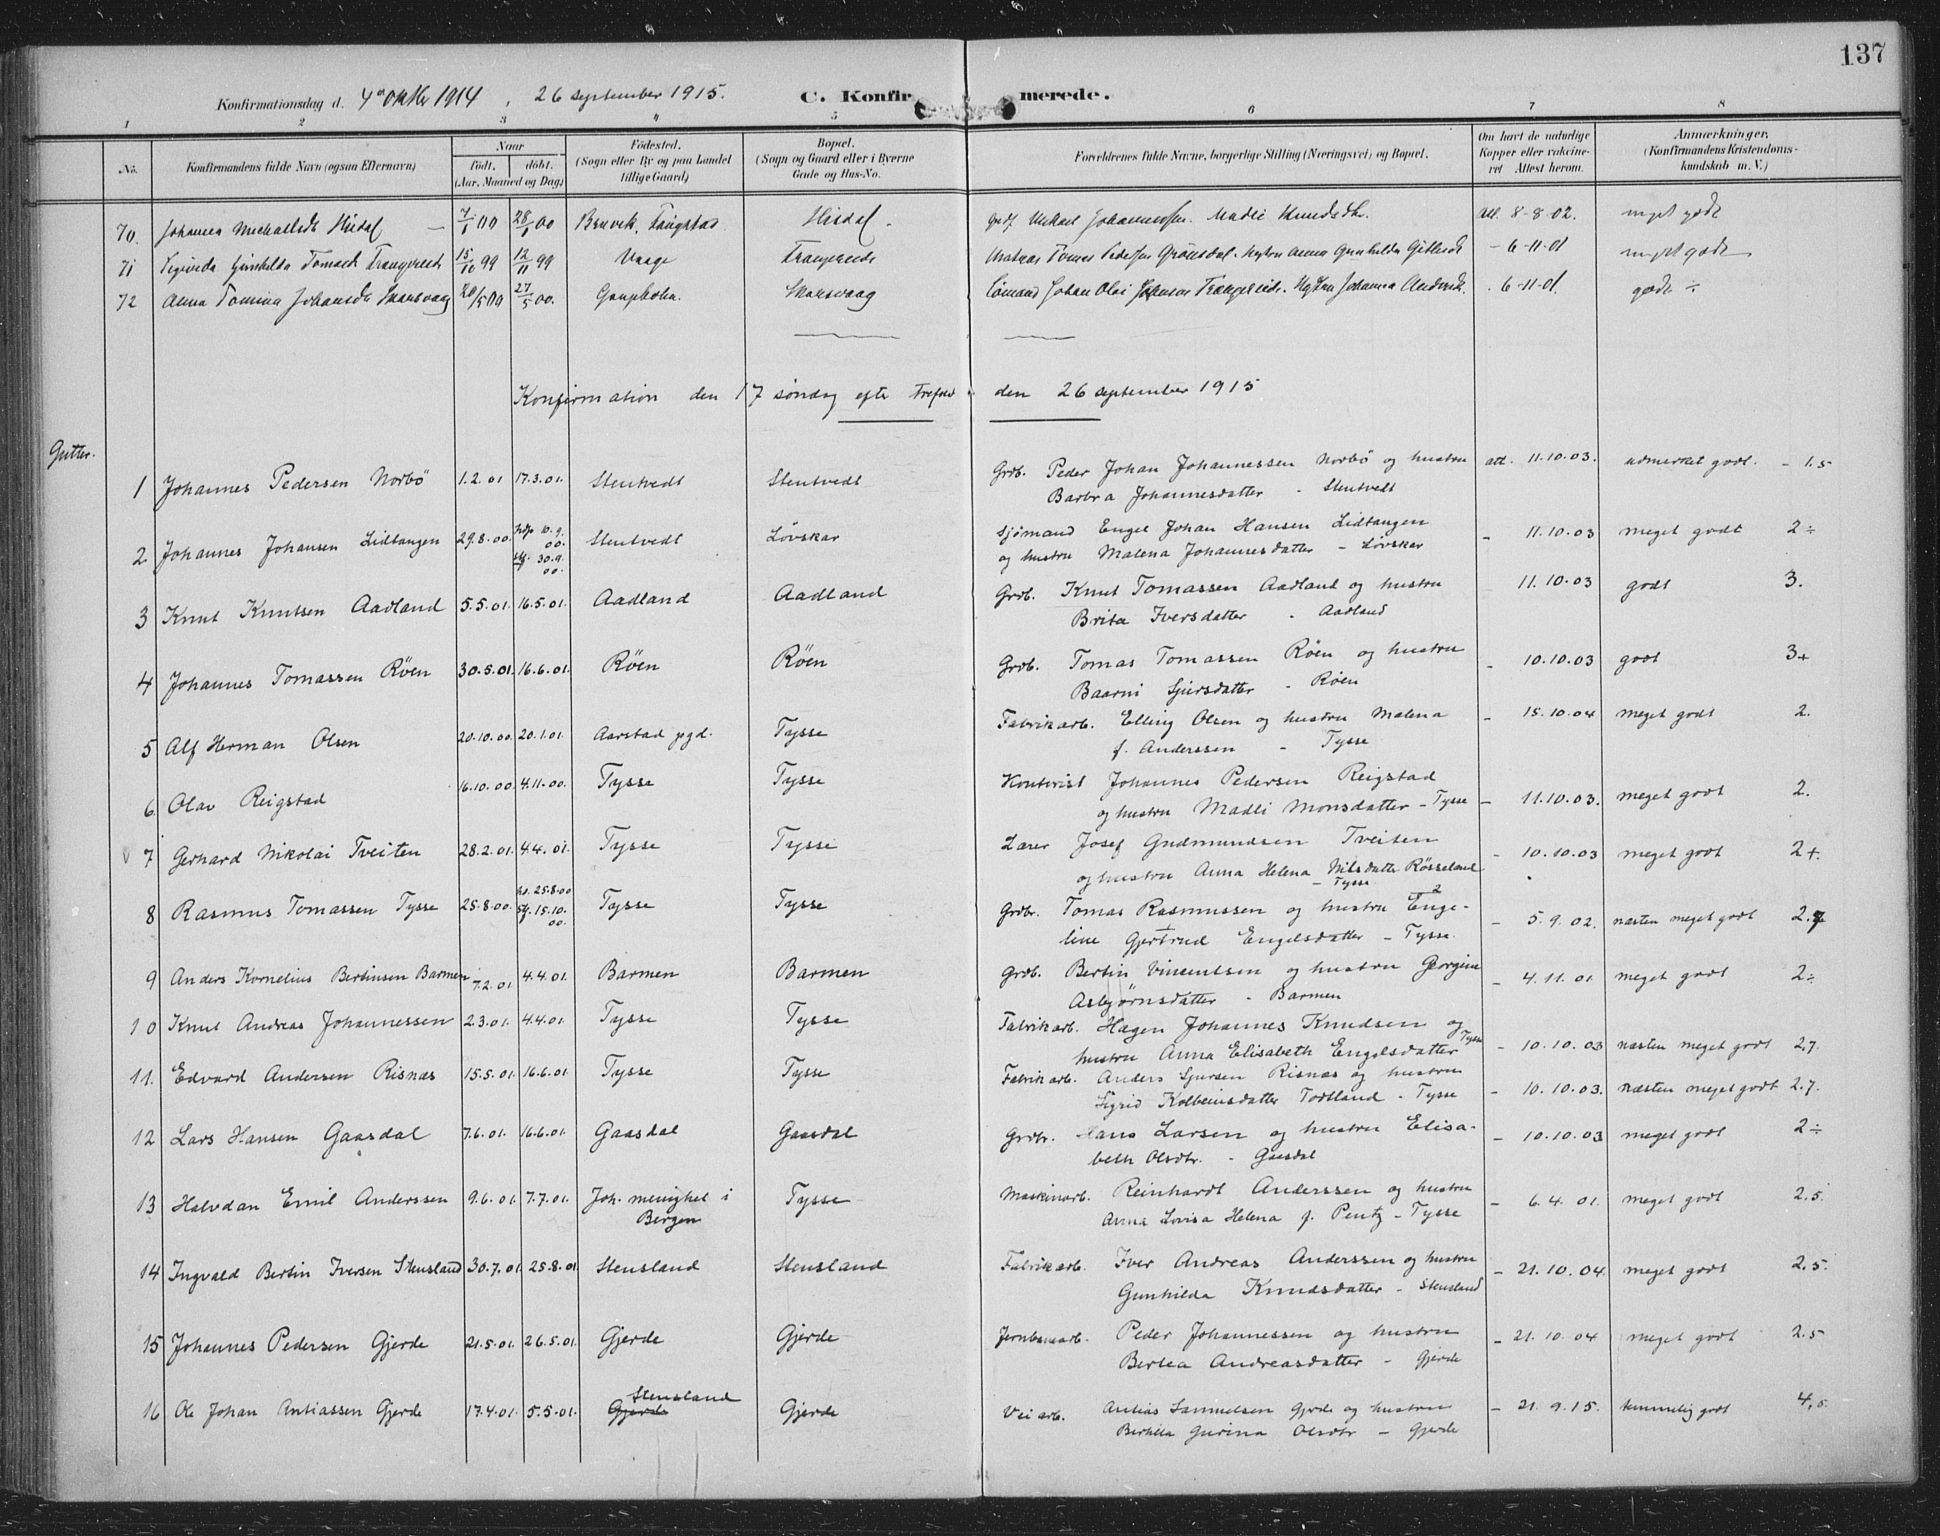 137
Konfirmationsdag d. 4de oktbr 1914, 26 september 1915. C. Konfirmerede.
1 2 3 4 5 6 7 8
No. Konfirmandens fulde Navn (ogsaa Efternavn) Naar født. døbt. (Aar, Maaned og Dag) Fødested. (Sogn eller By og paa Landet tillige Gaard) Bopæl. (Sogn og Gaard eller i Byerne Gade og Hus-No. Forældrenes fulde Navne, borgerlige Stilling (Næringsvei) og Bopæl. Om havt de naturlige Kopper eller vakcineret Attest herom. Anmærkninger. (Konfirmandens Kristendomskundskab m. V.)
70. Johanna Michaelsdt Hisdal 7/1 00 28/1 00 Bruvik Hisdal Mikael Johannessen Madli att. 8-8-02. meget godt
71 Tomasdt Trangereide 15/10 99 12/11 99 Vaage Trangereide Matros Tomas Pedersen Anna Gunhilda - 6-11-01 meget godt
72 Anna Tomina Johansdt Skarsvaag 20/5 00 27/5 00. Gauphola. Skarsvaag Sømand Johan Olai Johnsen Trangereide. Hustru Johanna 6-11-01. godt ÷
Konfirmation den 17 søndag efter trefold. den 26 september 1915
Gutter.
1 Johannes Pedersen Norbö 1.2.01 17.3.01. Stentvedt Stentvedt Grdb. Peder Johan Johannessen Norbö og hustru att. 11.10.03. udmerket godt. - 1.5
Barbra Johannesdatter - Stentvedt
2 Johannes Johansen Lidtangen 29.8.00. hdp 10.9.00. stf. 30.9.00. Stentvedt Løvskar Sjømand Engel Johan Hansen Lidtangen - 11.10.03 meget godt 2÷
og hustru Malena Johannesdatter - Løvskar
3 Knut Knutsen Aadland 5.5.01. 16.5.01. Aadland Aadland Grdb. Knut Tomassen Aadland og hustru 11.10.03 godt 3.
Brita Iversdatter - Aadland
4 Johannes Tomassen Röen 30.5.01. 16.6.01. Röen Röen Grdb. Tomas Tomassen Röen og hustru - 10.10.03 godt 3+
Baarni Sjursdatter - Röen
5 Alf Herman Olsen 20.10.00. 20.1.01. Aarstad pgd. Tysse Fabrikarb. Elling Olsen og hustru Malena - 15.10.04 meget godt 2.
f. Anderssen - Tysse
6 Olav Reigstad 16.10.00. 4.11.00. Tysse Tysse Kontorist Johannes Pedersen Reigstad
og hustru Madli Monsdatter - Tysse - 11.10.03. meget godt 2.
7 Gerhard Nikolai Tveiten 28.2.01. 4.4.01. Tysse Tysse Lærer Josef Gudmundsen Tveiten - 10.10.03 meget godt 2+.
og hustru Anna Helena Nilsdatter Røsseland - Tysse
8 Rasmus Tomassen Tysse 25.8.00. hd. 25.8.00 stf. 15.10.00. Tysse Tysse Grdbr. Tomas Rasmussen og hustru Enge- - 5.9.02. næsten meget godt 2.7
line Gjertrud Engelsdatter - Tysse.
9 Anders Kornelius Bertinsen Barmen 7.2.01. 4.4.01. Barmen Barmen Grdb. Bertin Vincentsen og hustru Georgine - 4.11.01. meget godt 2÷
Asbjørnsdatter - Barmen
10 Knut Andreas Johannessen 2.3.01. 4.4.01. Tysse Tysse Fabrikarb. Hagen Johannes Knudsen og
hustru Anna Elisabeth Engelsdatter Tysse - 10.10.03 næsten meget godt 2.7.
11. Edvard Andersen Risnæs 15.5.01. 16.6.01. Tysse Tysse Fabrikarb. Anders Sjursen Risnæs og hustru
Sigrid Kolbeinsdatter Toftland - Tysse - 10.10.03. næsten meget godt 2.7.
12 Lars Hansen Gaasdal 7.6.01. 16.6.01. Gaasdal Gaasdal Grdbr. Hans Larsen og hustru Elisa- - 10.10.03 meget godt 2÷
beth Olsdtr. - Gaasdal
13 Halvdan Emil Anderssen 9.6.01. 7.7.01. Joh. menighet i Bergen Tysse Maskinarb. Reinhardt Anderssen og hustru - 6.4.01. meget godt 2.5.
Anna Lovisa Helena f. Pentz - Tysse
14 Ingvald Bertin Iversen Stensland 30.7.01. 25.8.01 Stensland Stensland Fabrikarb. Iver Andreas Anderssen og hustru - 21.10.04. meget godt 2.5.
Gunhilda Knudsdatter - Stensland
15 Johannes Pedersen Gjerde 21.5.01. 26.5.01. Gjerde Gjerde Jernbanearb. Peder Johannessen og hustru - 21.10.04 meget godt 2.5
Bertea Andreasdatter - Gjerde
16 Ole Johan Antiassen Gjerde 17.4.01. 5.5.01. Stensland Gjerde Gjerde Veiarb. Antias Samuelsen Gjerde og hustru - 21.9.15. temmelig godt 4,5
Bertilla Gurina Olsdtr - Gjerde